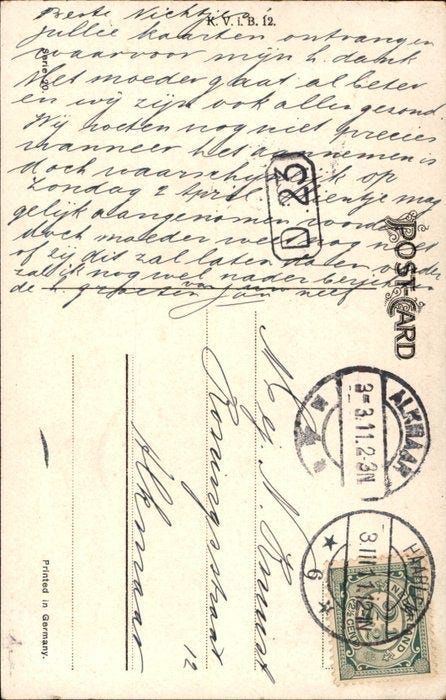 K. V. i. B. 12.
Serie 20.
Beste Nicht
Jullie kaarten ontvangen
waarvoor mijn h. dank
Met moeder gaat al beter
en wij zijn ook allen gezond
Wij weten nog niet precies
wanneer het aannemen is
doch waarschijnlijk op
zondag 2 April
gelijk aangenomen
doch moeder
of zij dit zal laten
zal ik nog wel nader berichten
de groeten van uw
Jan neef
D 23
POST CARD
Mej. N.
Koningsstraat
12
Alkmaar
ALKMAAR
3-3.11.2-3N
HAARLEM
6
Printed in Germany.